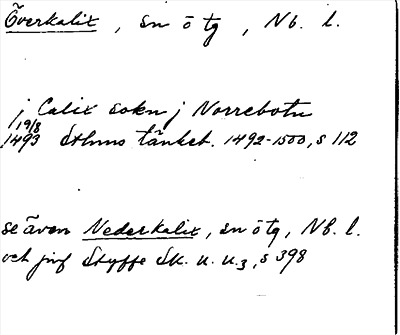 Överkalix, sn ö tg, Nb. l.
j Calix sokn j Norrebotn
19/8
1493 Sthms tänkeb. 1492-1500, s 112
se även Nederkalix, sn ö tg, Nb. l.
och jmf Styffe Sk. u. u. 3, s 398